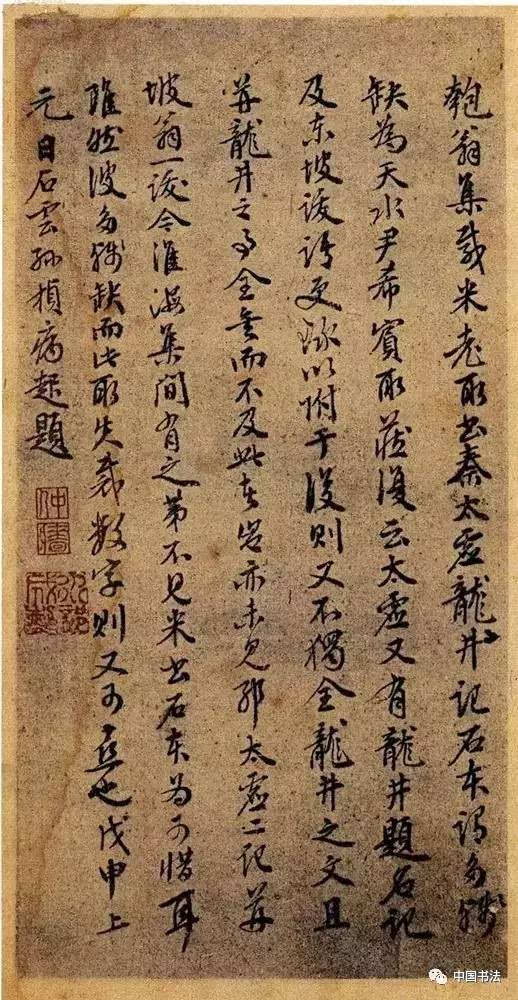 匏翁集載米老所書秦太虛龍井記石本謂多殘
缺為天水尹希賓所藏復云太虛又有龍井題名記
及東坡跋語更錄以附于後則又不獨全龍井之文且
并龍井之事全矣而不及此本豈亦未見耶太虛二記并
坡翁一跋今淮海集間有之第不見米書石本為可惜耳
雖然彼多殘缺而此所失裁數字則又可喜也戊申上
元日石雲孫楨病起題
中国书法